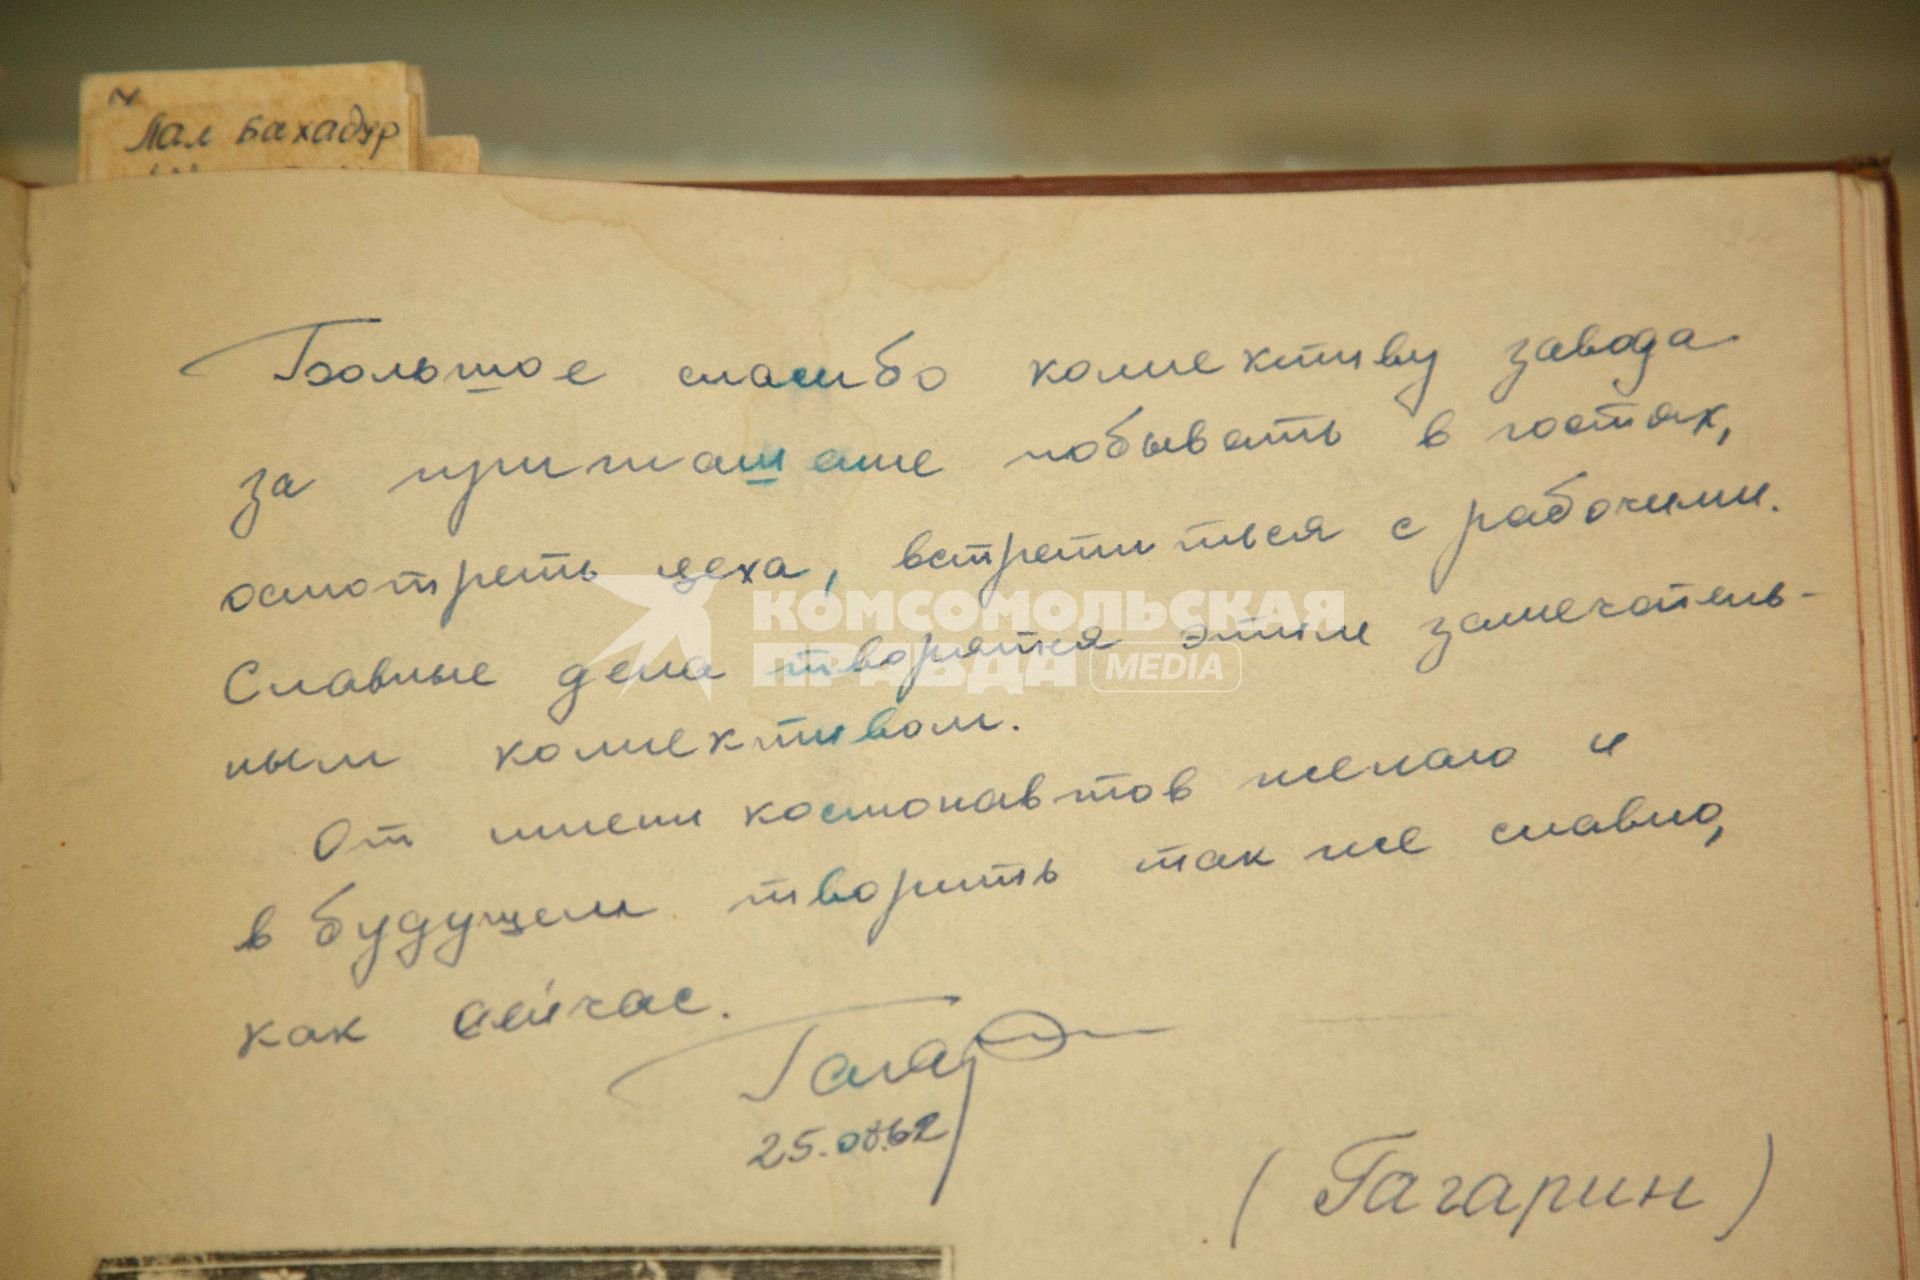 Лал Бахадур
Большое спасибо коллективу завода
за приглашение побывать в гостях,
осмотреть цеха, встретиться с рабочими.
Славные дела творятся этим замечатель-
ным коллективом.
От имени космонавтов желаю и
в будущем творить так же славно,
как сейчас.
Гагар
25.08.62
(Гагарин)
КОМСОМОЛЬСКАЯ
ПРАВДА MEDIA